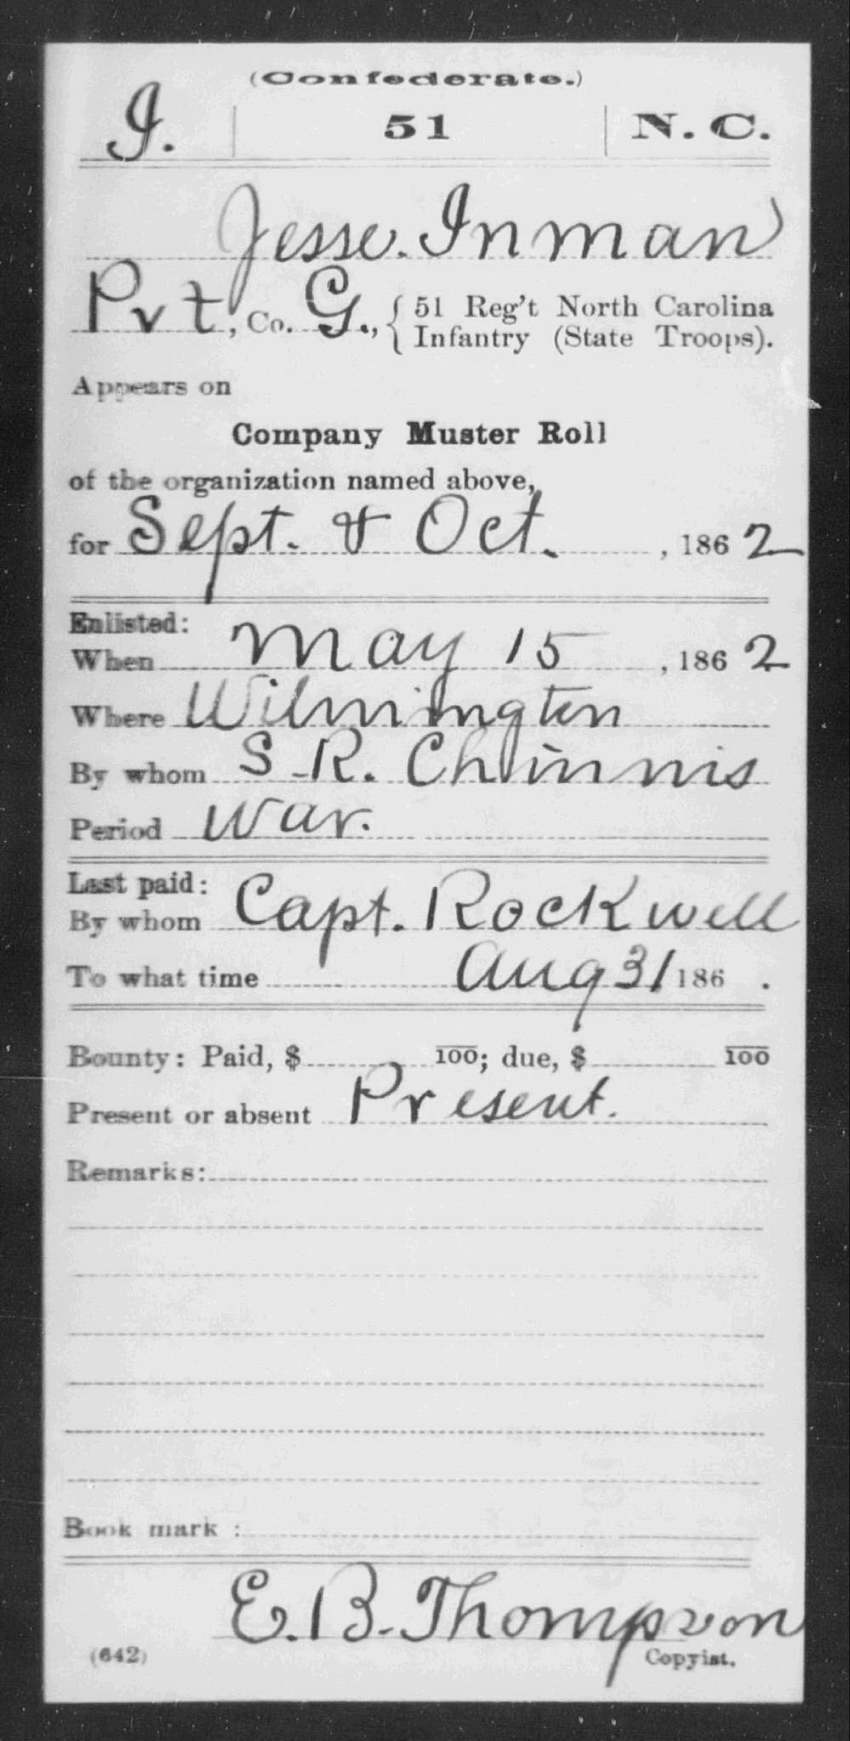 (Confederate.)
I. 51 N. C.
Jesse. Inman
Pvt, Co. G., { 51 Reg't North Carolina
Infantry (State Troops).
Appears on
Company Muster Roll
of the organization named above,
for Sept. & Oct. , 186 2
Enlisted:
When May 15 , 186 2
Where Wilmington
By whom S. R. Chinnis
Period War.
Last paid:
By whom Capt. Rockwell
To what time Aug 31 186 .
Bounty: Paid, $ 100; due, $ 100
Present or absent Present.
Remarks:
Book mark :
E. B. Thompson
(642) Copyist.